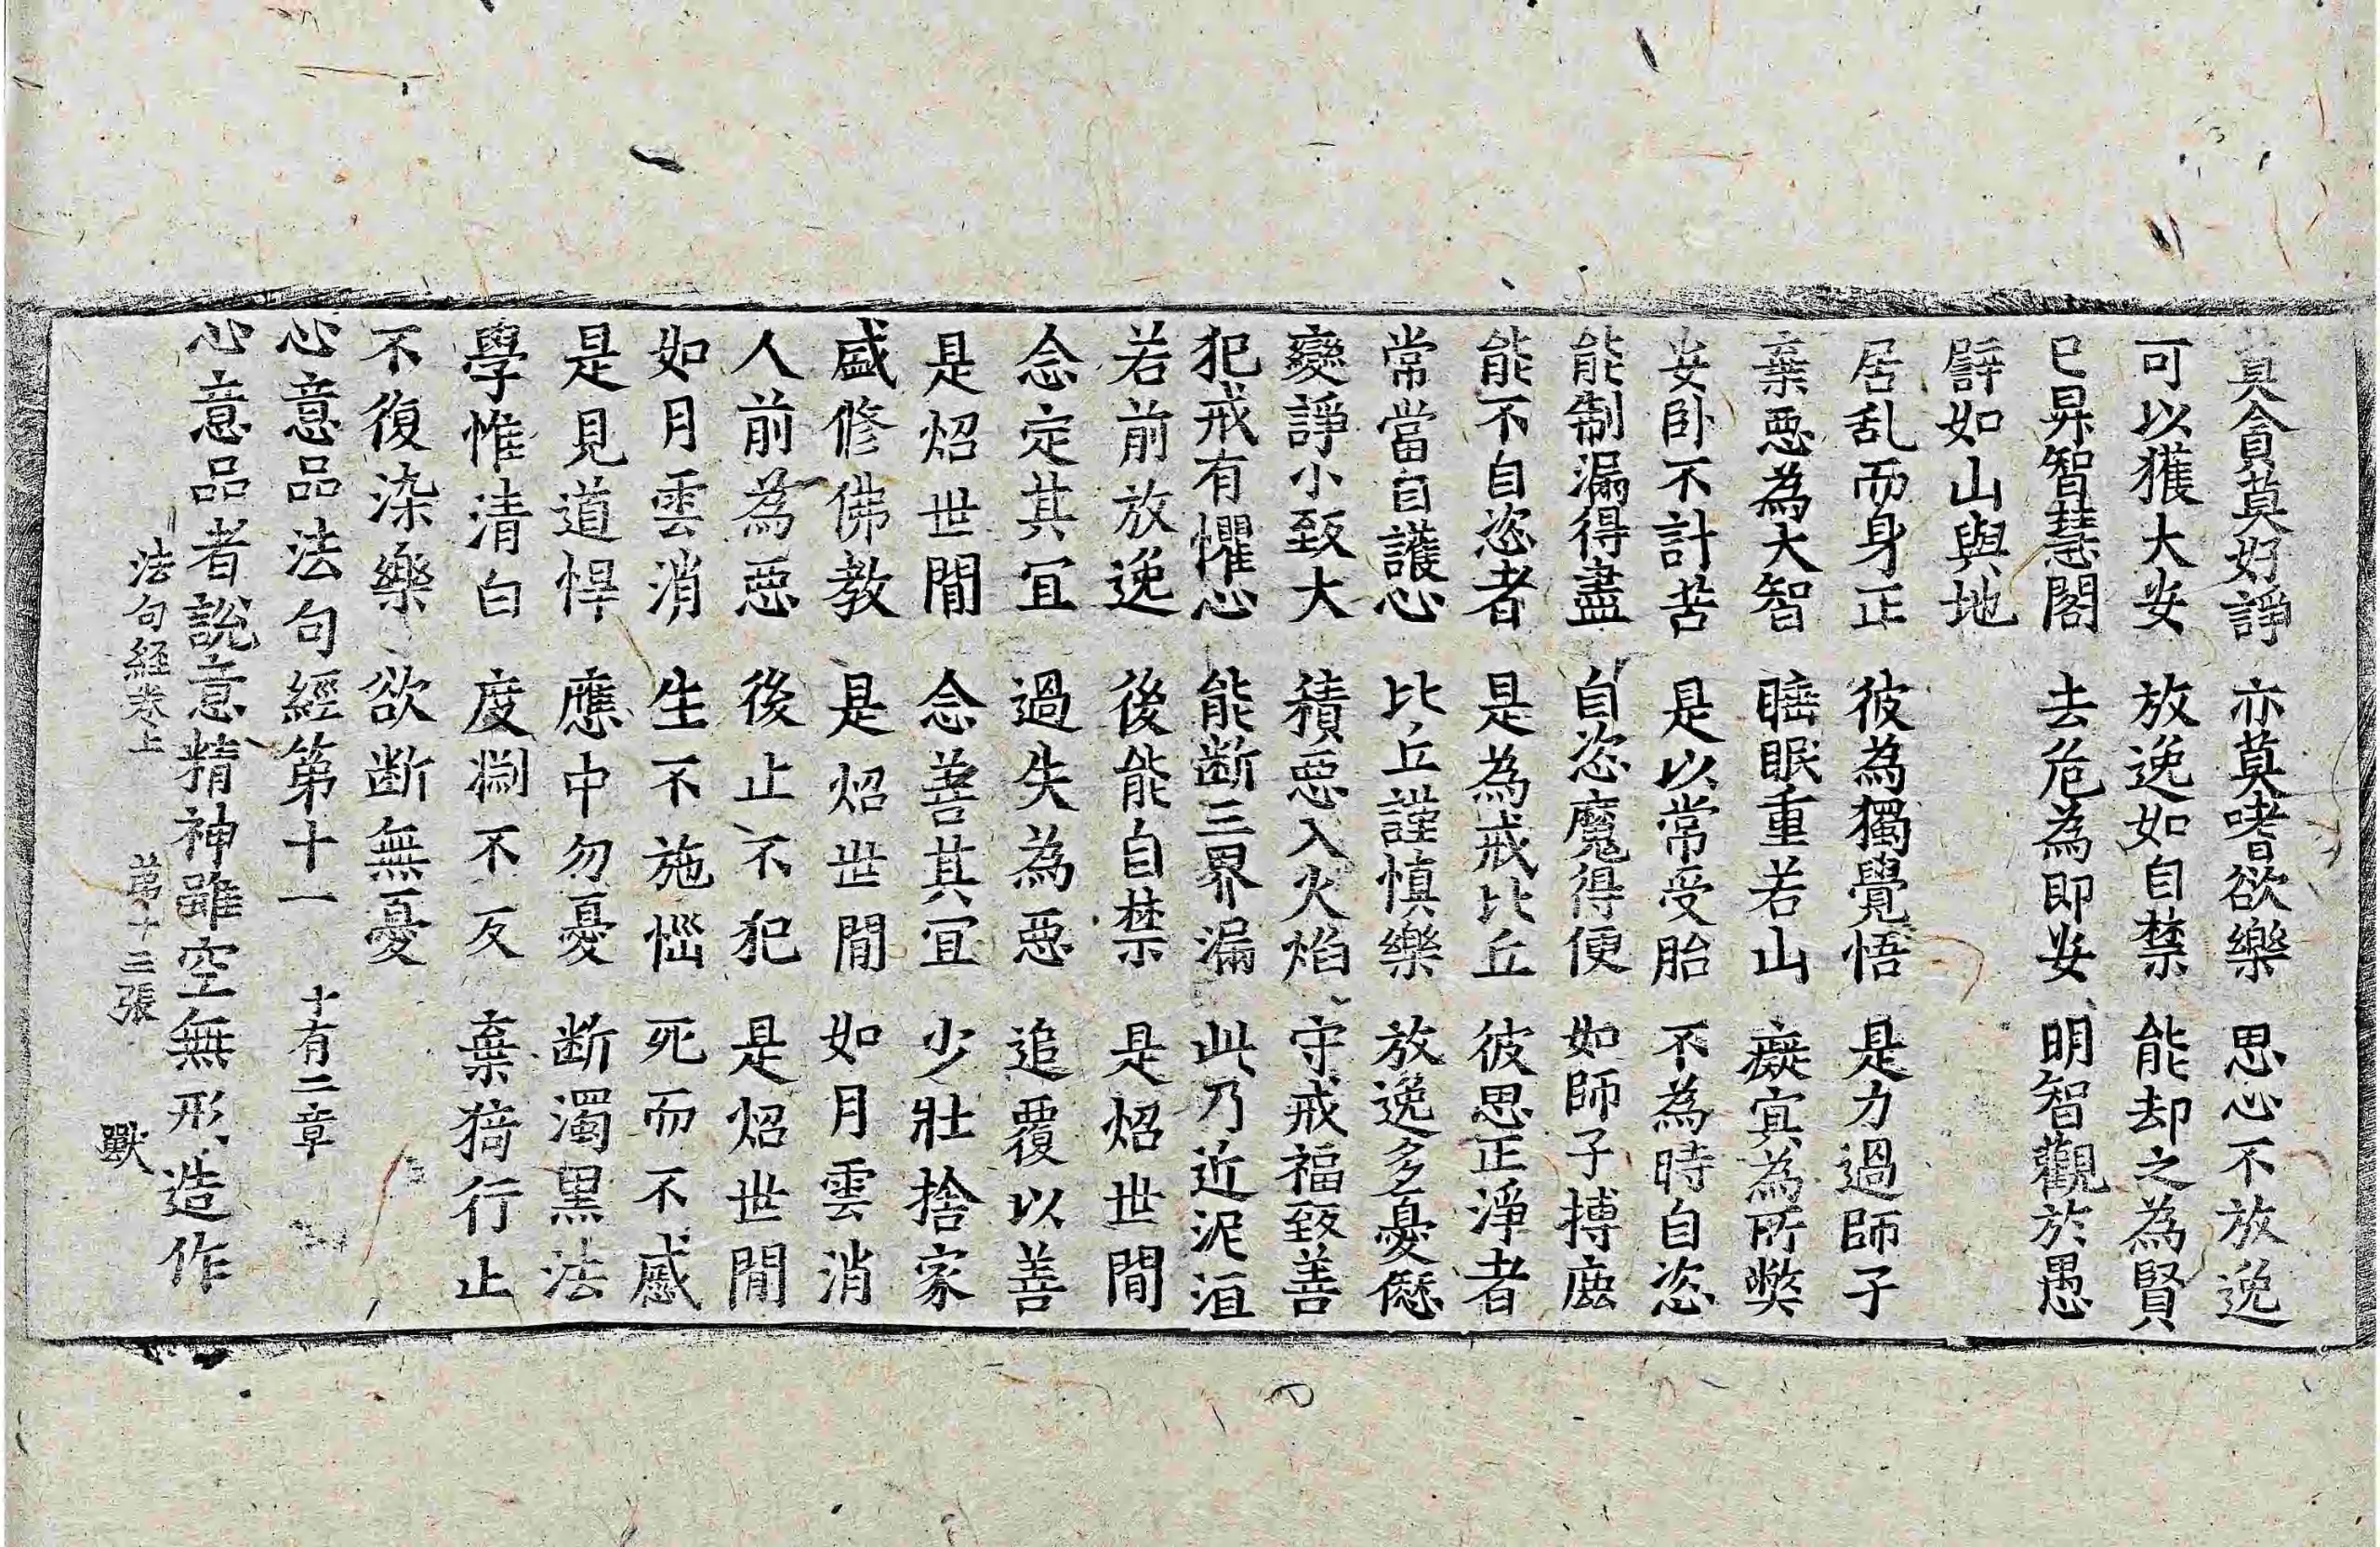 莫貪莫好諍 亦莫嗜欲樂 思心不放逸
可以獲大安 放逸如自禁 能却之為賢
已昇智慧閣 去危為即安 明智觀於愚
譬如山與地
居乱而身正 彼為獨覺悟 是力過師子
棄惡為大智 睡眠重若山 癡冥為所弊
安卧不計苦 是以常受胎 不為時自恣
能制漏得盡 自恣魔得便 如師子搏鹿
能不自恣者 是為戒比丘 彼思正淨者
常當自護心 比丘謹慎樂 放逸多憂愆
變諍小致大 積惡入火焰 守戒福致善
犯戒有懼心 能断三界漏 此乃近泥洹
若前放逸 後能自禁 是炤世間
念定其宜 過失為惡 追覆以善
是炤世間 念善其宜 少壯捨家
盛修佛教 是炤世間 如月雲消
人前為惡 後止不犯 是炤世間
如月雲消 生不施惱 死而不慼
是見道悍 應中勿憂 断濁黑法
學惟清白 度淵不反 棄猗行止
不復染樂 欲断無憂
心意品法句經第十一 十有二章
心意品者說意精神雖空無形造作
法句經卷上 第十二張 獸